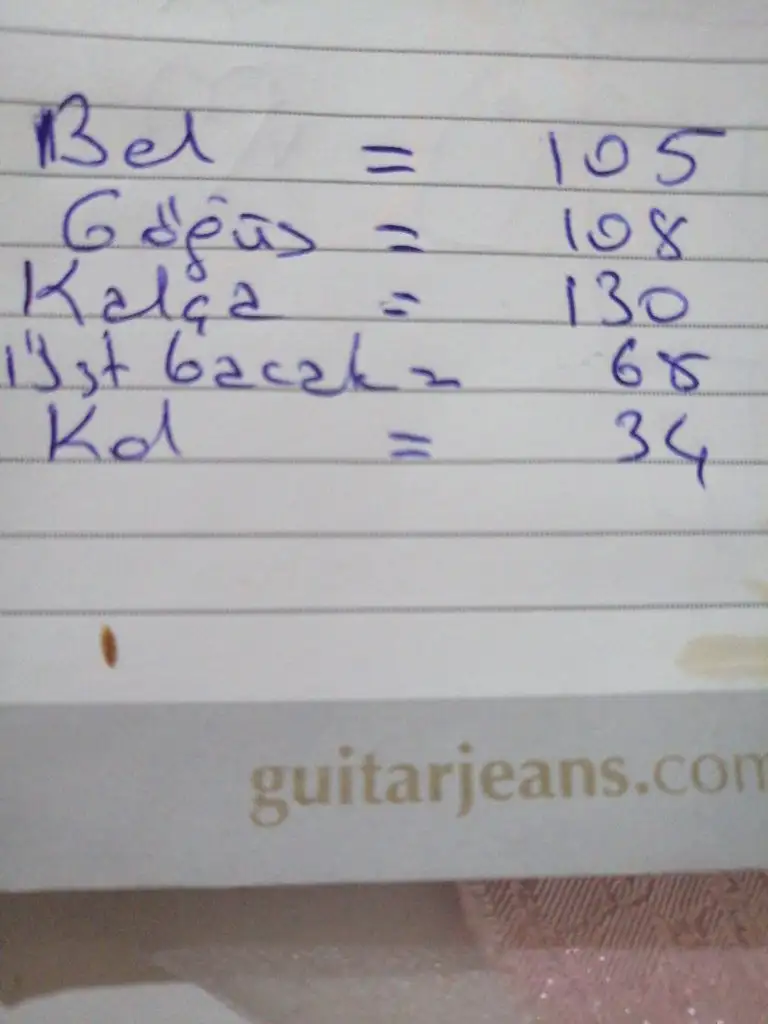 Bel = 105
Göğüs = 108
Kalça = 130
Üst bacak = 68
Kol = 34
guitarjeans.com